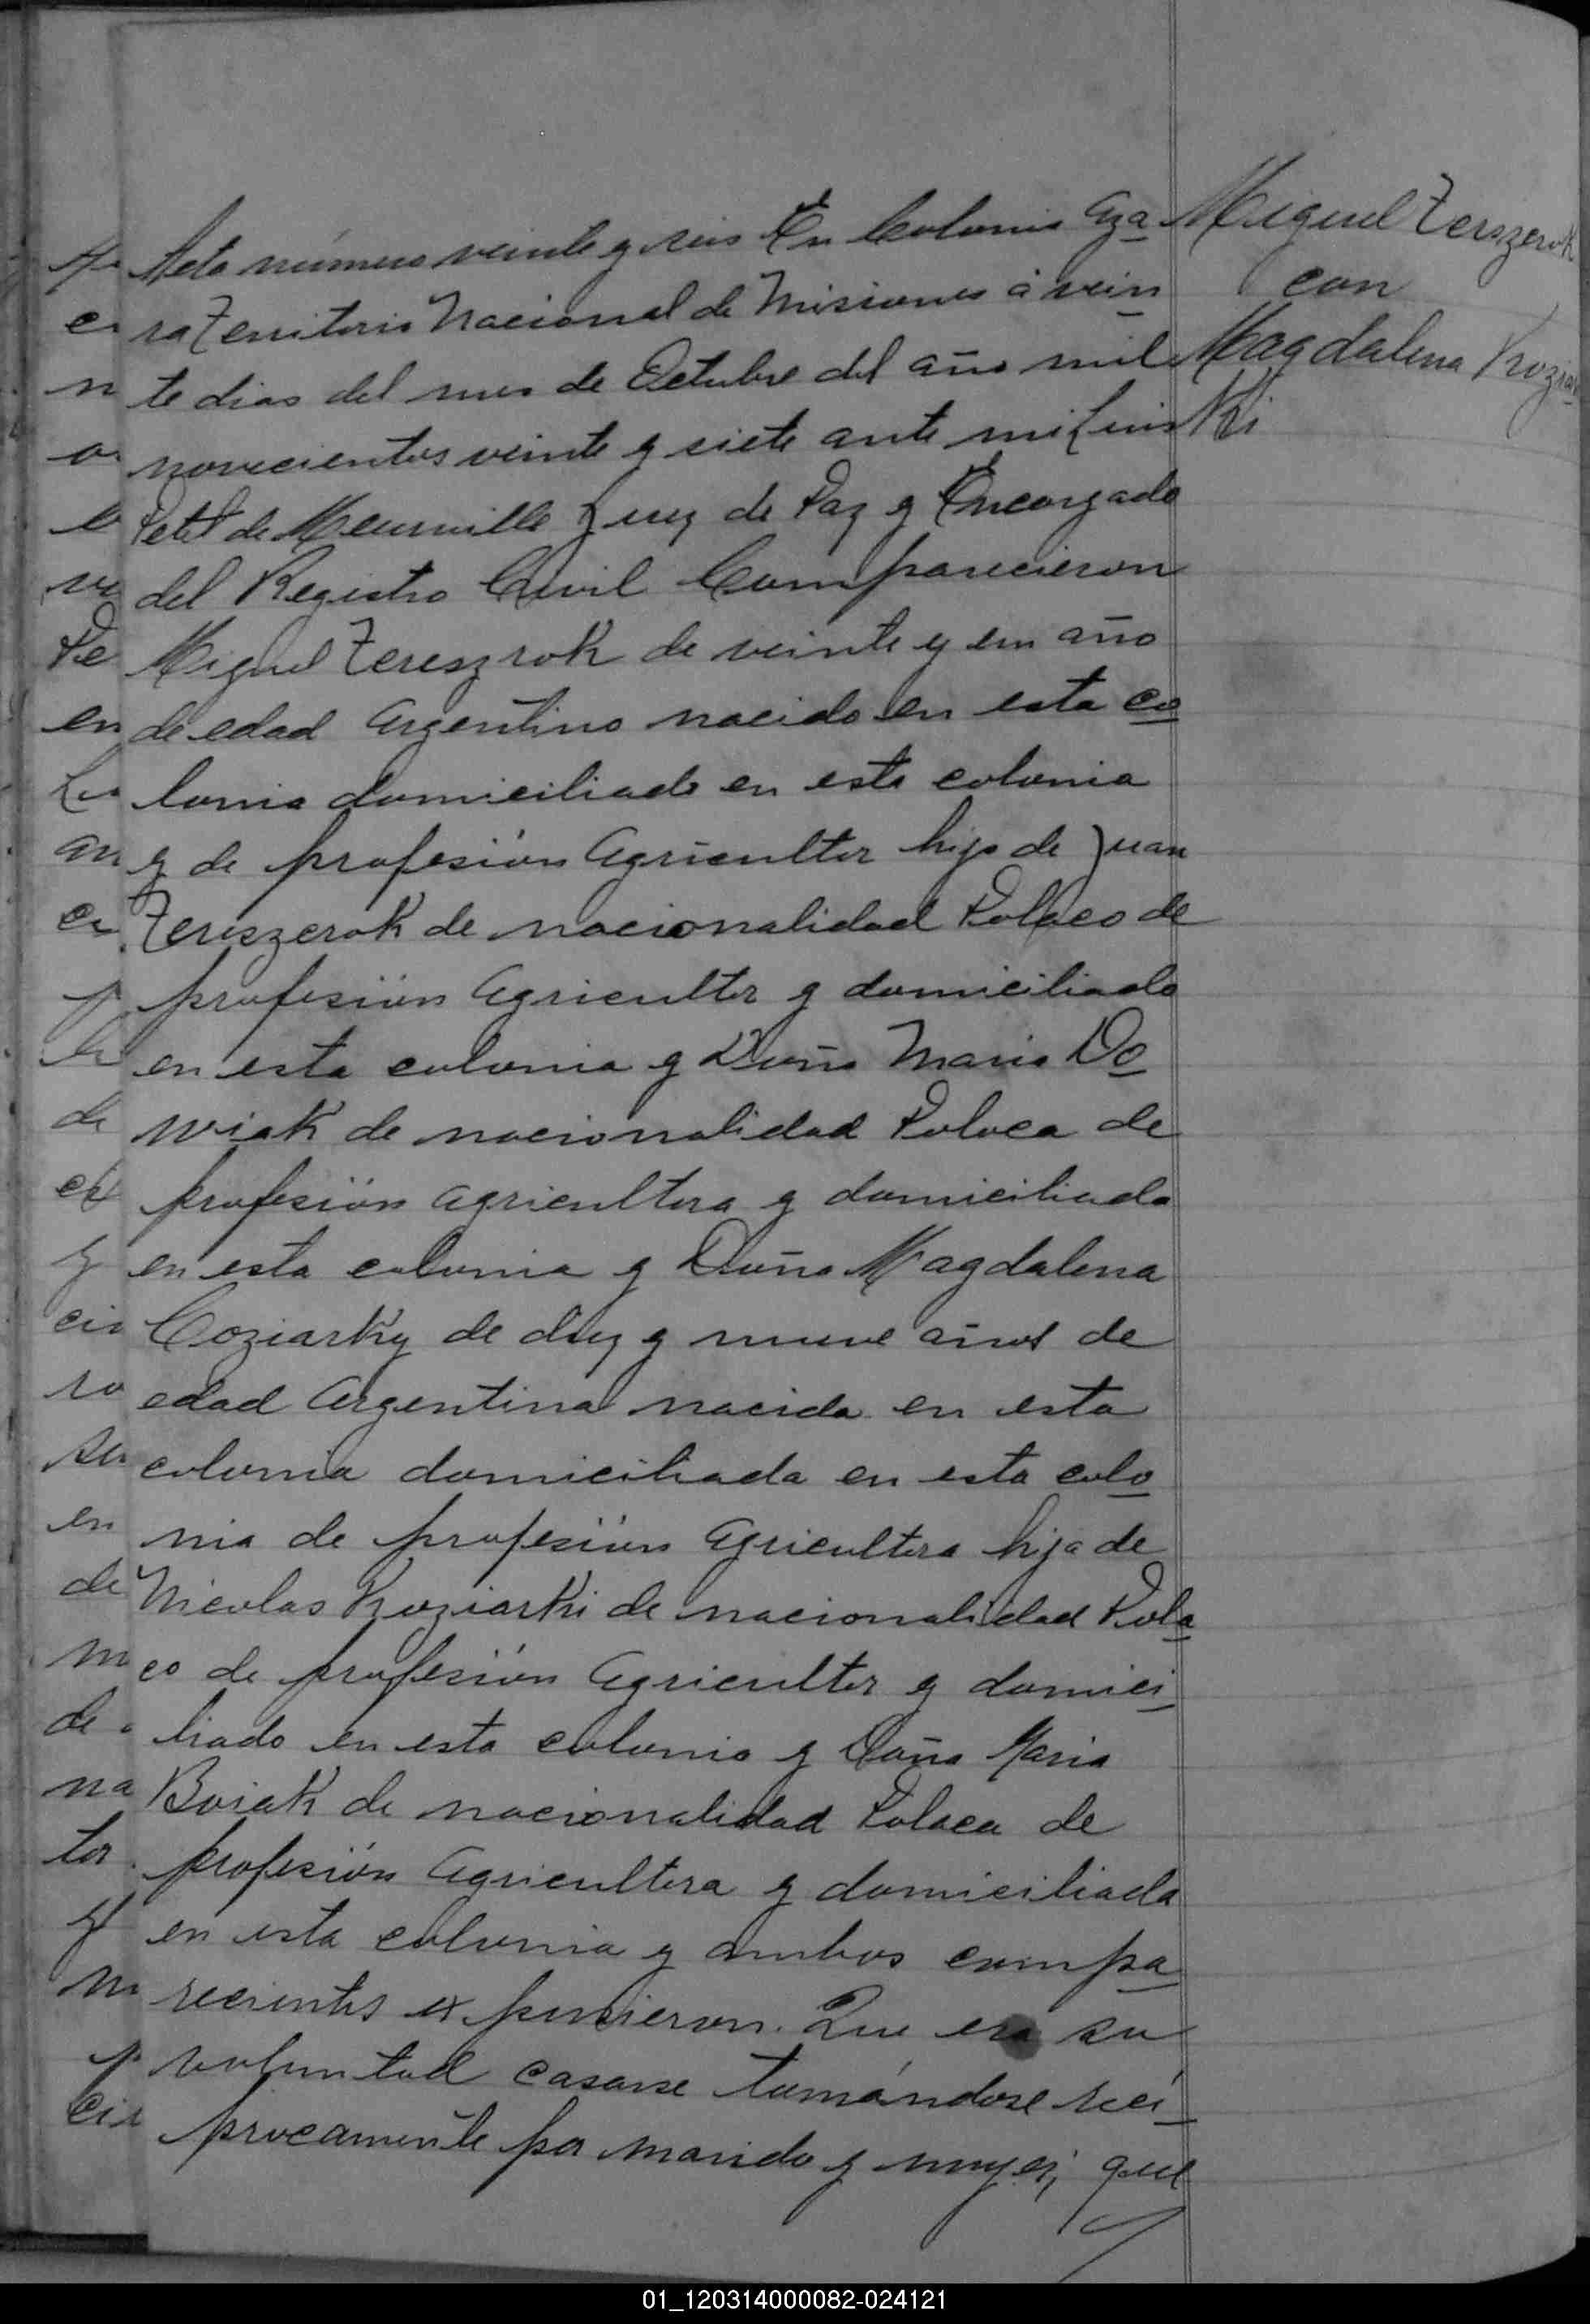 Acta número veinte y seis En Colonia Aza
ra Territorio Nacional de Misiones á vein
te dias del mes de Octubre del año mil
novecientos veinte y siete ante mi Luis
Petit de Meurville Juez de Paz y Encargado
del Registro Civil Comparecieron
Miguel Tereszrok de veinte y un año
de edad Argentino nacido en esta co
lonia domiciliado en esta colonia
y de profesión Agricultor hijo de Juan
Tereszerok de nacionalidad Polaco de
profesión Agricultor y domiciliado
en esta colonia y Doña Maria Do
wiak de nacionalidad Polaca de
profesión agricultora y domiciliada
en esta colonia y Doña Magdalena
Coziarky de diez y nueve años de
edad Argentina nacida en esta
colonia domiciliada en esta colo
nia de profesión Agricultora hija de
Nicolas Koziarki de nacionalidad Pola
co de profesión Agricultor y domici
liado en esta colonia y Doña Maria
Boiak de nacionalidad Polaca de
profesión Agricultora y domiciliada
en esta colonia y ambos compa
recientes expusieron. Que era su
voluntad casarse tomándose recí
procamente por marido y mujer, que
Miguel Terszerok
con
Magdalena Koziar
Ki
01_120314000082-024121